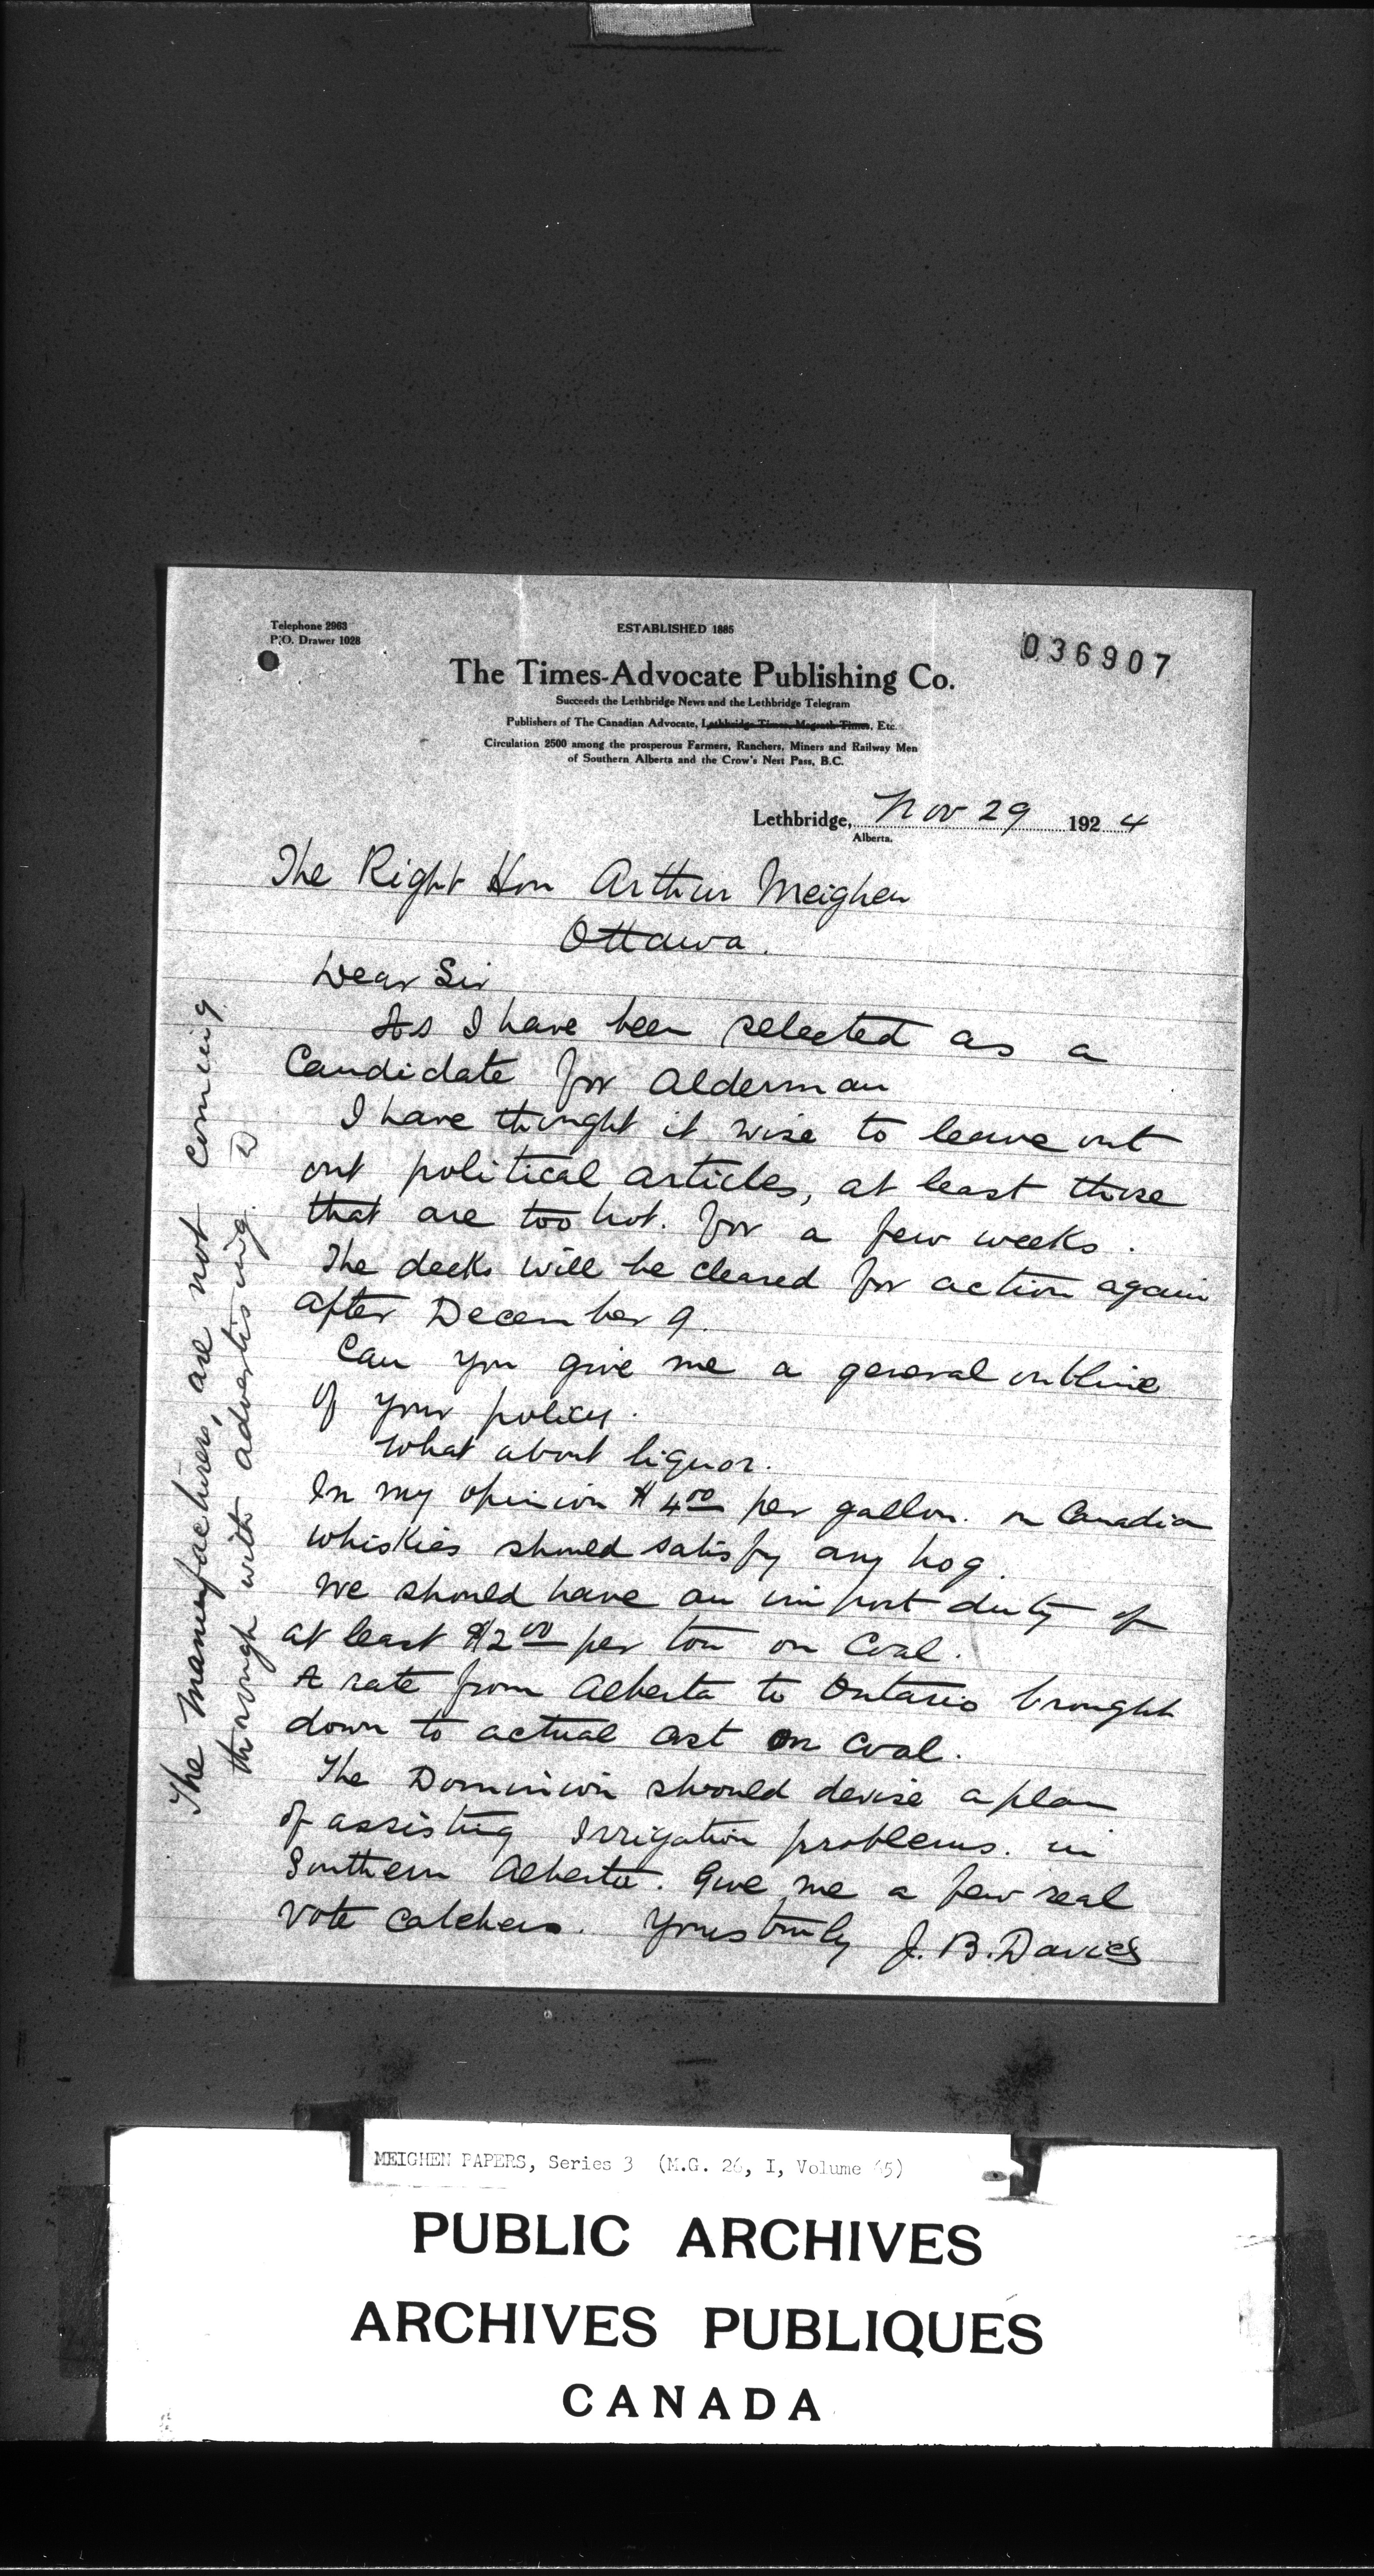 Telephone 2963
P.O. Drawer 1028
ESTABLISHED 1885
036907
The Times-Advocate Publishing Co.
Succeeds the Lethbridge News and the Lethbridge Telegram
Publishers of The Canadian Advocate, Lethbridge Times, Magrath Times, Etc.
Circulation 2500 among the prosperous Farmers, Ranchers, Miners and Railway Men
of Southern Alberta and the Crow's Nest Pass, B.C.
Lethbridge, Nov 29 1924
Alberta.
The Right Hon Arthur Meighen
Ottawa.
Dear Sir
As I have been selected as a
Candidate for Alderman
I have thought it wise to leave out
out political articles, at least those
that are too hot. for a few weeks.
The decks will be cleared for action again
after December 9.
Can you give me a general outline
of your policy.
What about liquor.
In my opinion $4.00 per gallon. on Canadia
whiskies should satisfy any hog.
We should have an import duty of
at least $2.00 per ton on Coal.
A rate from Alberta to Ontario brought
down to actual cost on Coal.
The Dominion should devise a plan
of assisting Irrigation problems. in
Southern Alberta. Give me a few real
vote catchers. Yours truly J. B. Davies
The Manufacturers, are not coming
through with advertising. D
MEIGHEN PAPERS, Series 3 (M.G. 26, I, Volume 65)
PUBLIC ARCHIVES
ARCHIVES PUBLIQUES
CANADA